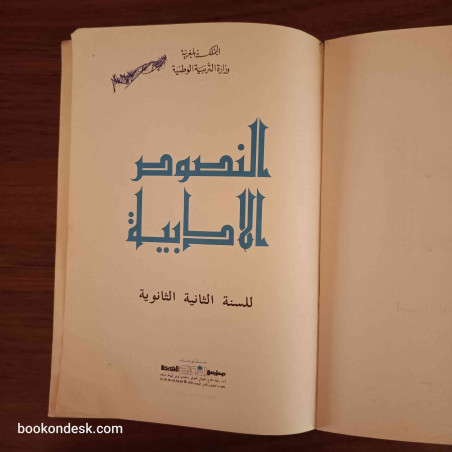 المملكة المغربية
وزارة التربية الوطنية
النصوص
الادبية
للسنة الثانية الثانوية
bookondesk.com